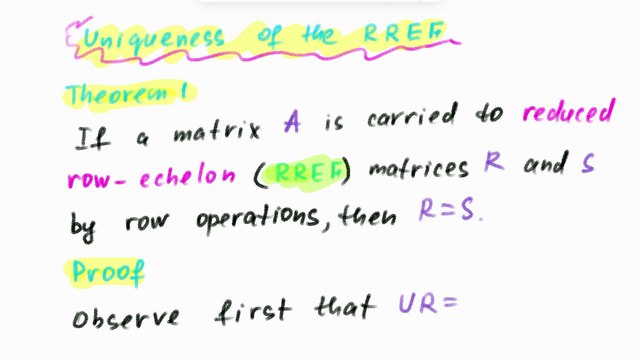 Uniqueness of the RREF
Theorem 1
If a matrix A is carried to reduced
row-echelon (RREF) matrices R and S
by row operations, then R=S.
Proof
Observe first that UR=